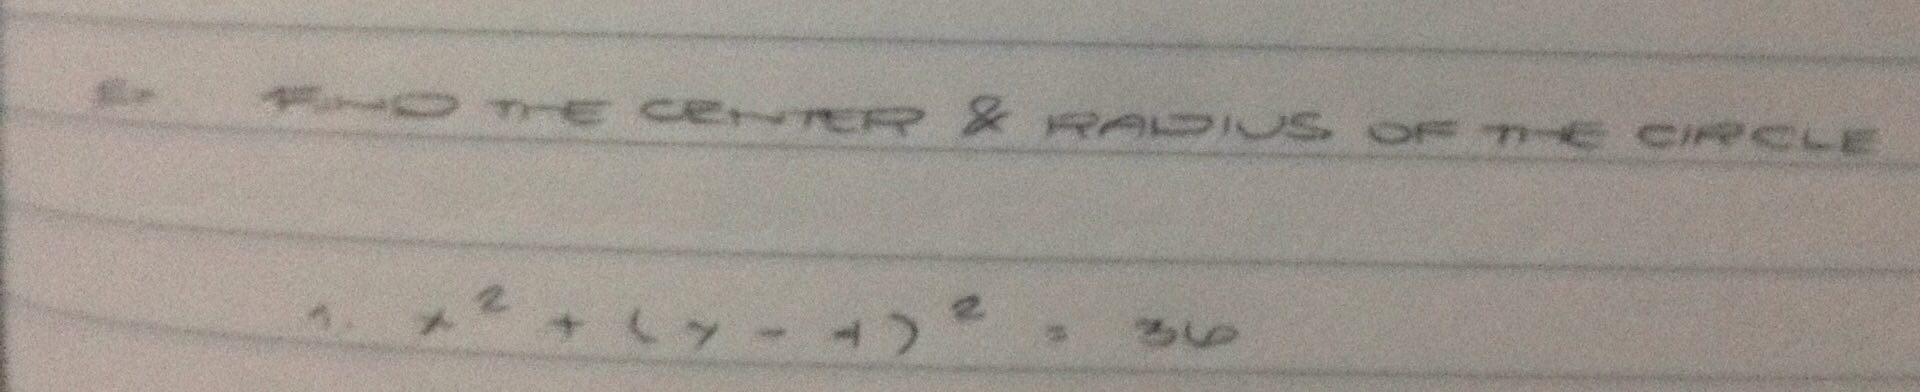 E. FIND THE CENTER & RADIUS OF THE CIRCLE
1. x² + (y - 4)² = 36